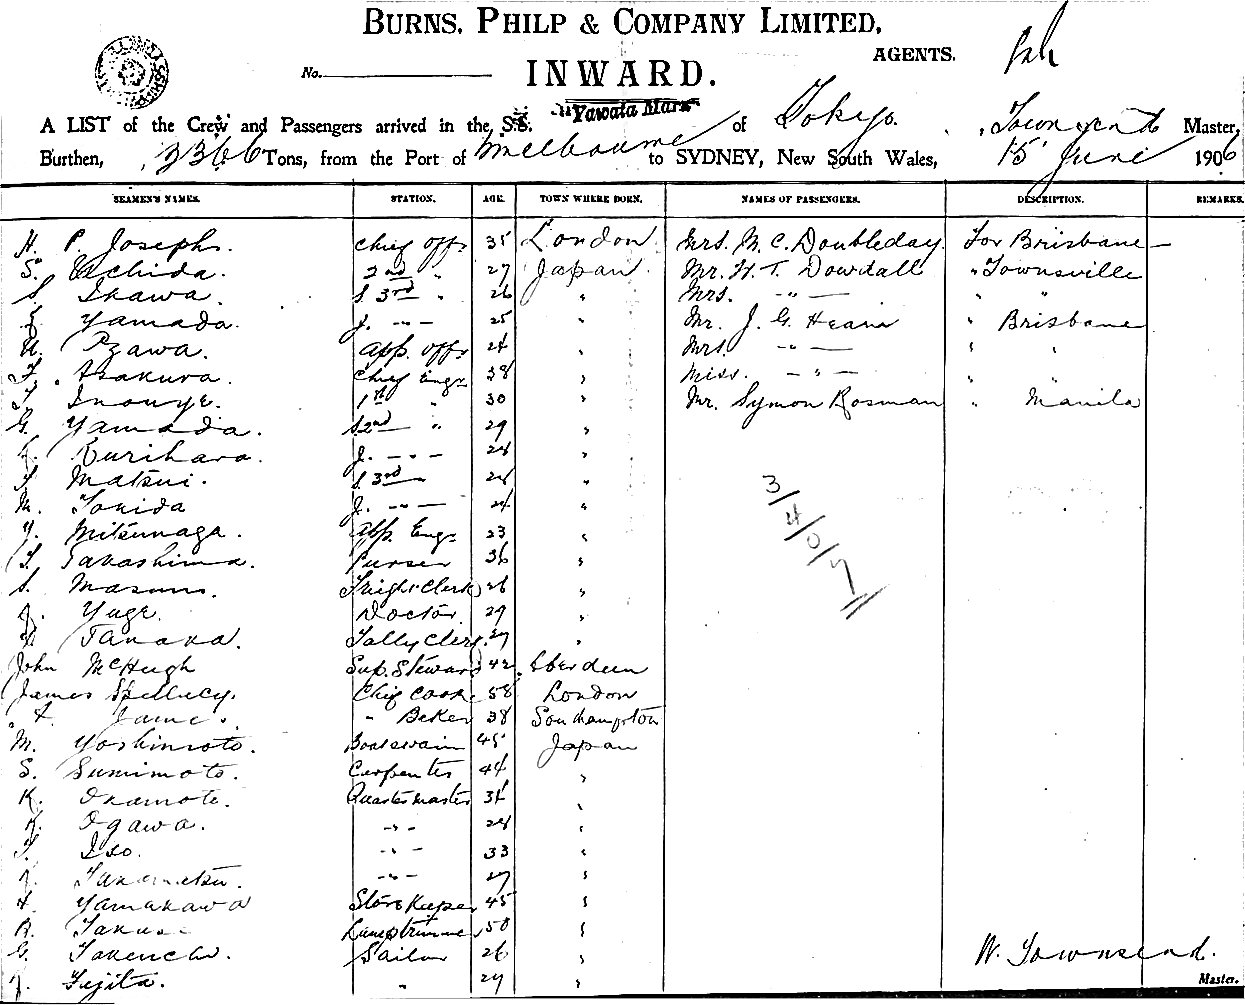 BURNS, PHILP & COMPANY LIMITED,
AGENTS.
No.
INWARD.
Yawata Maru
A LIST of the Crew and Passengers arrived in the S.S. of Tokyo. Townsend Master,
Burthen, 3366 Tons, from the Port of Melbourne to SYDNEY, New South Wales, 15 June 1906
SEAMEN'S NAMES. STATION. AGE. TOWN WHERE BORN. NAMES OF PASSENGERS. DESCRIPTION. REMARKS.
H. P. Joseph. Chief offr 35 London Mrs. M. C. Doubleday. For Brisbane —
S. Uchida. 2nd " 27 Japan Mr. H. T. Dowdall " Townsville
S. Ikawa. S 3rd " 26 " Mrs. — " — " "
Yamada. J. — " — 25 " Mr. J. G. Hearn " Brisbane
U. Ozawa. App. offr 24 " Mrs. — " — " "
Asakura. Chief Engr 38 " Miss. — " — " "
Inouye. 1st " 30 " Mr. Symon Rosman " Manila
G. Yamada. S 2nd " 29 "
Kurihara. J. — " — 28 "
Matsui. S 3rd — 28 "
M. Tokida J. — " — 24 "
Y. Mitsunaga. App. Engr 23 "
T. Takashima. Purser 36 "
S. Freight Clerk 26 "
Yuge. Doctor. 29 "
Tanaka. Tally Clerk. 27 "
John McHugh Sup. Steward 42 Aberdeen
James Spellucy. Chief Cook 58 London
" Baker 38 Southampton
M. Yoshimoto. Boatswain 45 Japan
S. Sumimoto. Carpenter 44 "
K. Okamoto. Quartermaster 34 "
K. Ogawa. — " — 28 "
T. Iso. — " — 33 "
— " — 27 "
Yamakawa Store Keeper 45 "
R. Lamptrimmer 50 "
G. Takenchi. Sailor 26 "
Fujita. " 29 "
3/4/0/5//
W. Townsend.
Master.